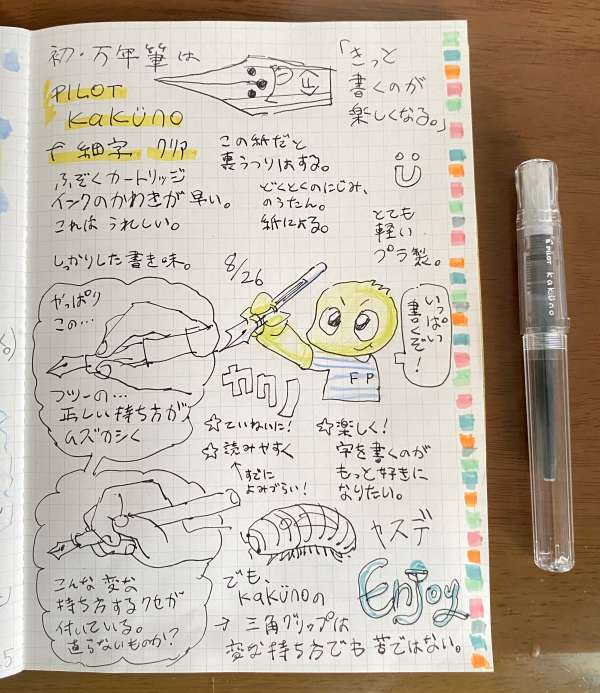 初・万年筆は
PILOT
KaKüno
f 細字 クリア
ふぞくカートリッジ
インクのかわきが早い。
これは うれしい。
しっかりした書き味。
F
「きっと
書くのが
楽しくなる。」
この紙だと
裏うつりはする。
どくとくのにじみ、
のうたん。
紙による。
とても
軽い
プラ製。
8/26
いっぱい
書くぞ!
FP
カクノ
やっぱり
この…
フツーの…
正しい持ち方が
ムズカシく
☆ていねいに!
☆読みやすく
↑すでに
よみづらい!
☆楽しく!
字を書くのが
もっと好きに
なりたい。
こんな変な
持ち方するクセが
付いている。
直らないものか?
ヤスデ
Enjoy
でも、
KaKünoの
→三角グリップは
変な持ち方でも苦ではない。
PILOT KaKüno